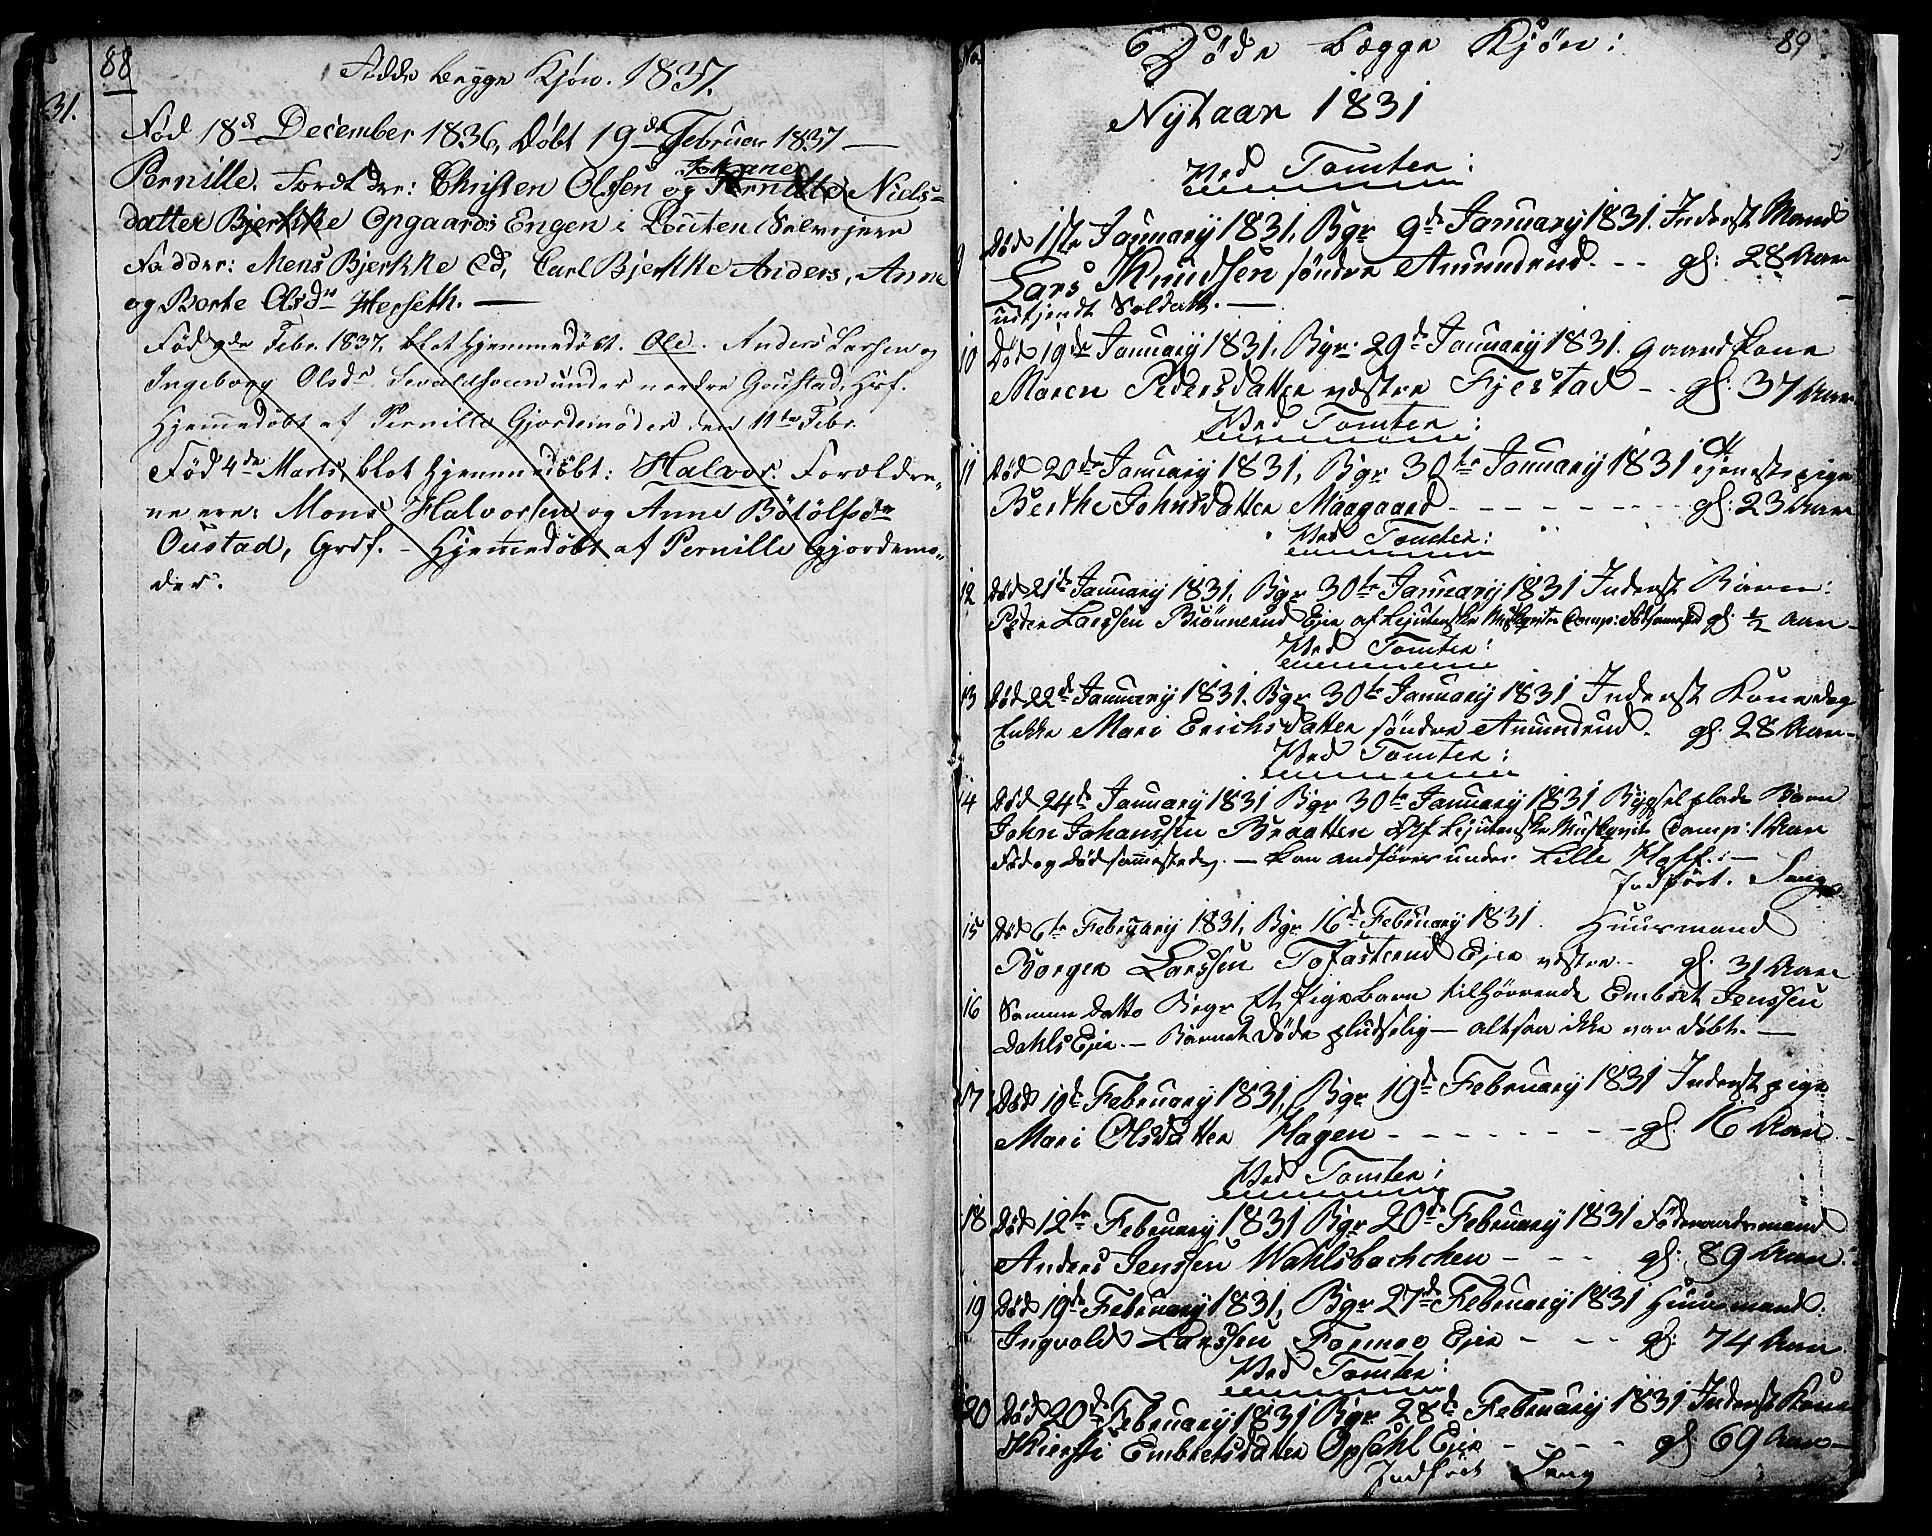 88
Fødde begge Kjøn. 1837.
31.
Fød 18d December 1836, Døbt 19de Februar 1837 —
Johane
Pernille. Forældre: Christen Olssen og Pernille Niels=
datter Bjerkke Opgaards Engen i Løuten Selvejere
Fadder: Mens Bjerkke Ed, Carl Bjerkke Anders, Anne
og Berte Olsdr Herseth. —
Fød 9de Febr. 1837, blot hjemmedøbt. Ole. Anders Larsen og
Ingeborg Olsdr. under nordre Goustad, Hsf.
Hjemmedøbt af Pernille Gjordemoder den 11te Febr.
Fød 4de Marts, blot hjemmedøbt: Halvor. Forældre,,
ne ere: Mons Halvorsen og Anne Botolfsdr
Oustad, Grdf. - Hjemmedøbt af Pernille Gjordemo,,
der.
No.
Døde begge Kjøn:
89
Nytaar 1831
Ved Tomter:
9 Død 1te Januarÿ 1831, Bgr 9de Januarÿ 1831. Inderst Mand
Lars Knudsen søndre Amundrud. - - gl: 28 Aar
udtjendt Soldatt. —
10 Død 19de Januarÿ 1831, Bgr. 29de Januarÿ 1831. gaard Kone
Maren Pedersdatter vestre Fjestad - - gl: 37 Aar
Ved Tomter:
11 Død 20de Januarÿ 1831, Bgr 30te Januarÿ 1831 tjenestpige
Berthe Johnsdatter Maagaard - - - - - - gl: 23 Aar
Ved Tomter:
12 Død 21de Januarÿ 1831, Bgr 30te Januarÿ 1831 Inderst Barn:
Peder Larssen Brønnerud Eje af Lejutenske Musqvite Comp: gl: 1/2 Aar-
Ved Tomter:
13 Død 22de Januarÿ 1831. Bgr 30te Januarÿ 1831 Inderst Kone og
Enkke Mari Erichsdatter søndre Amundrud. gl: 28 Aar-
Ved Tomter:
14 Død 24de Januarÿ 1831 Bgr 30te Januarÿ 1831 Bÿgselplads Barn
John Johanssen Braatten Af Lejutenske Musqvite Comp: 1 Aar
Fød og Død sammested - kan andføres under Lille Hoff.: -
Indført. Lang
15 Død 6te Februarÿ 1831, Bgr 16de Februarÿ 1831. Huusmand
Borger Larssen Tofasterud Eje vestre. - gl: 31 Aar
16 Samme Datto Begr Et Pigebarn tilhørrende Embret Jenssen
Dahls Eje. - Barnet Døde pludselig - altsaa ikke var døbt. —
17 Død 19de Februarÿ 1831, Bgr 19de Februarÿ 1831 Inderst pige
Mari Olsdatter Hagen - - - - - - - gl: 16 Aar -
Ved Tomter:
18 Død 12te Februarÿ 1831 Bgr 20de Februarÿ 1831 Føderaadsmand
Anders Jenssen Wahlsbachchen - - - gl: 89 Aar:
19 Død 19de Februarÿ 1831, Bgr 27de Februarÿ 1831 Huusmand.
Ingvold Larssen Formoe Eje - - - gl: 74 Aar
Ved Tomter:
20 Død 20de Februarÿ 1831 Bgr 28de Februarÿ 1831 Inderst Kone
Kiersti Embretsdatter Opsahl Eje - - - - gl: 69 Aar -
Indført Lang